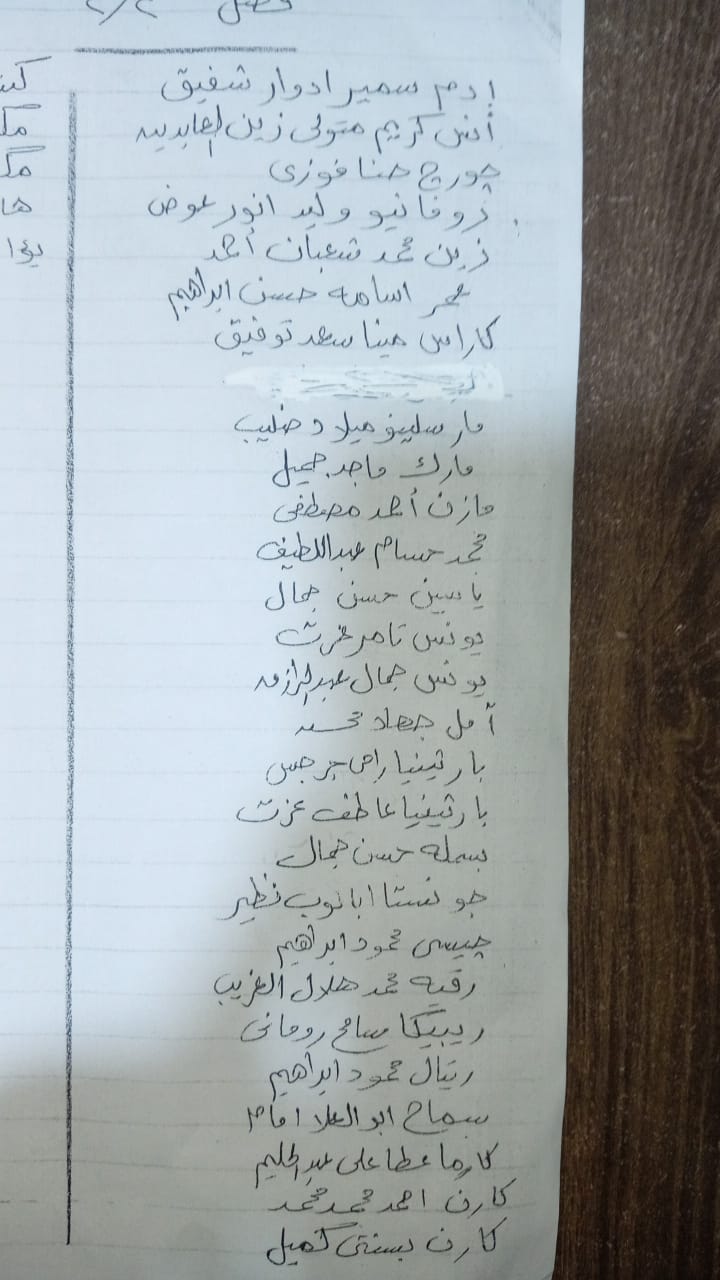 فصل ٢/٢
ادم سمير ادوار شفيق
أنس كريم متولى زين العابدين
چورچ حنا فوزى
زوفانيو وليد انور عوض
زين محمد شعبان أحمد
عمر اسامه حسن ابراهيم
كاراس مينا سعد توفيق
مارسلينو ميلاد صليب
مارك ماجد جميل
مازن أحمد مصطفى
محمد حسام عبداللطيف
ياسين حسن جمال
يونس تامر عزت
يونس جمال عبدالرازق
أمل جهاد محمد
بارثينيا رامى جرجس
بارثينيا عاطف عزت
بسمله حسن جمال
جونستا ابانوب نظير
چيسى محمود ابراهيم
رقيه محمد هلال الغريب
ريبيكا سامح رومانى
ريتال محمود ابراهيم
سماح ابو العلا امام
كارما عطا على عبدالحليم
كارن احمد محمد محمد
كارن بسنتى كميل